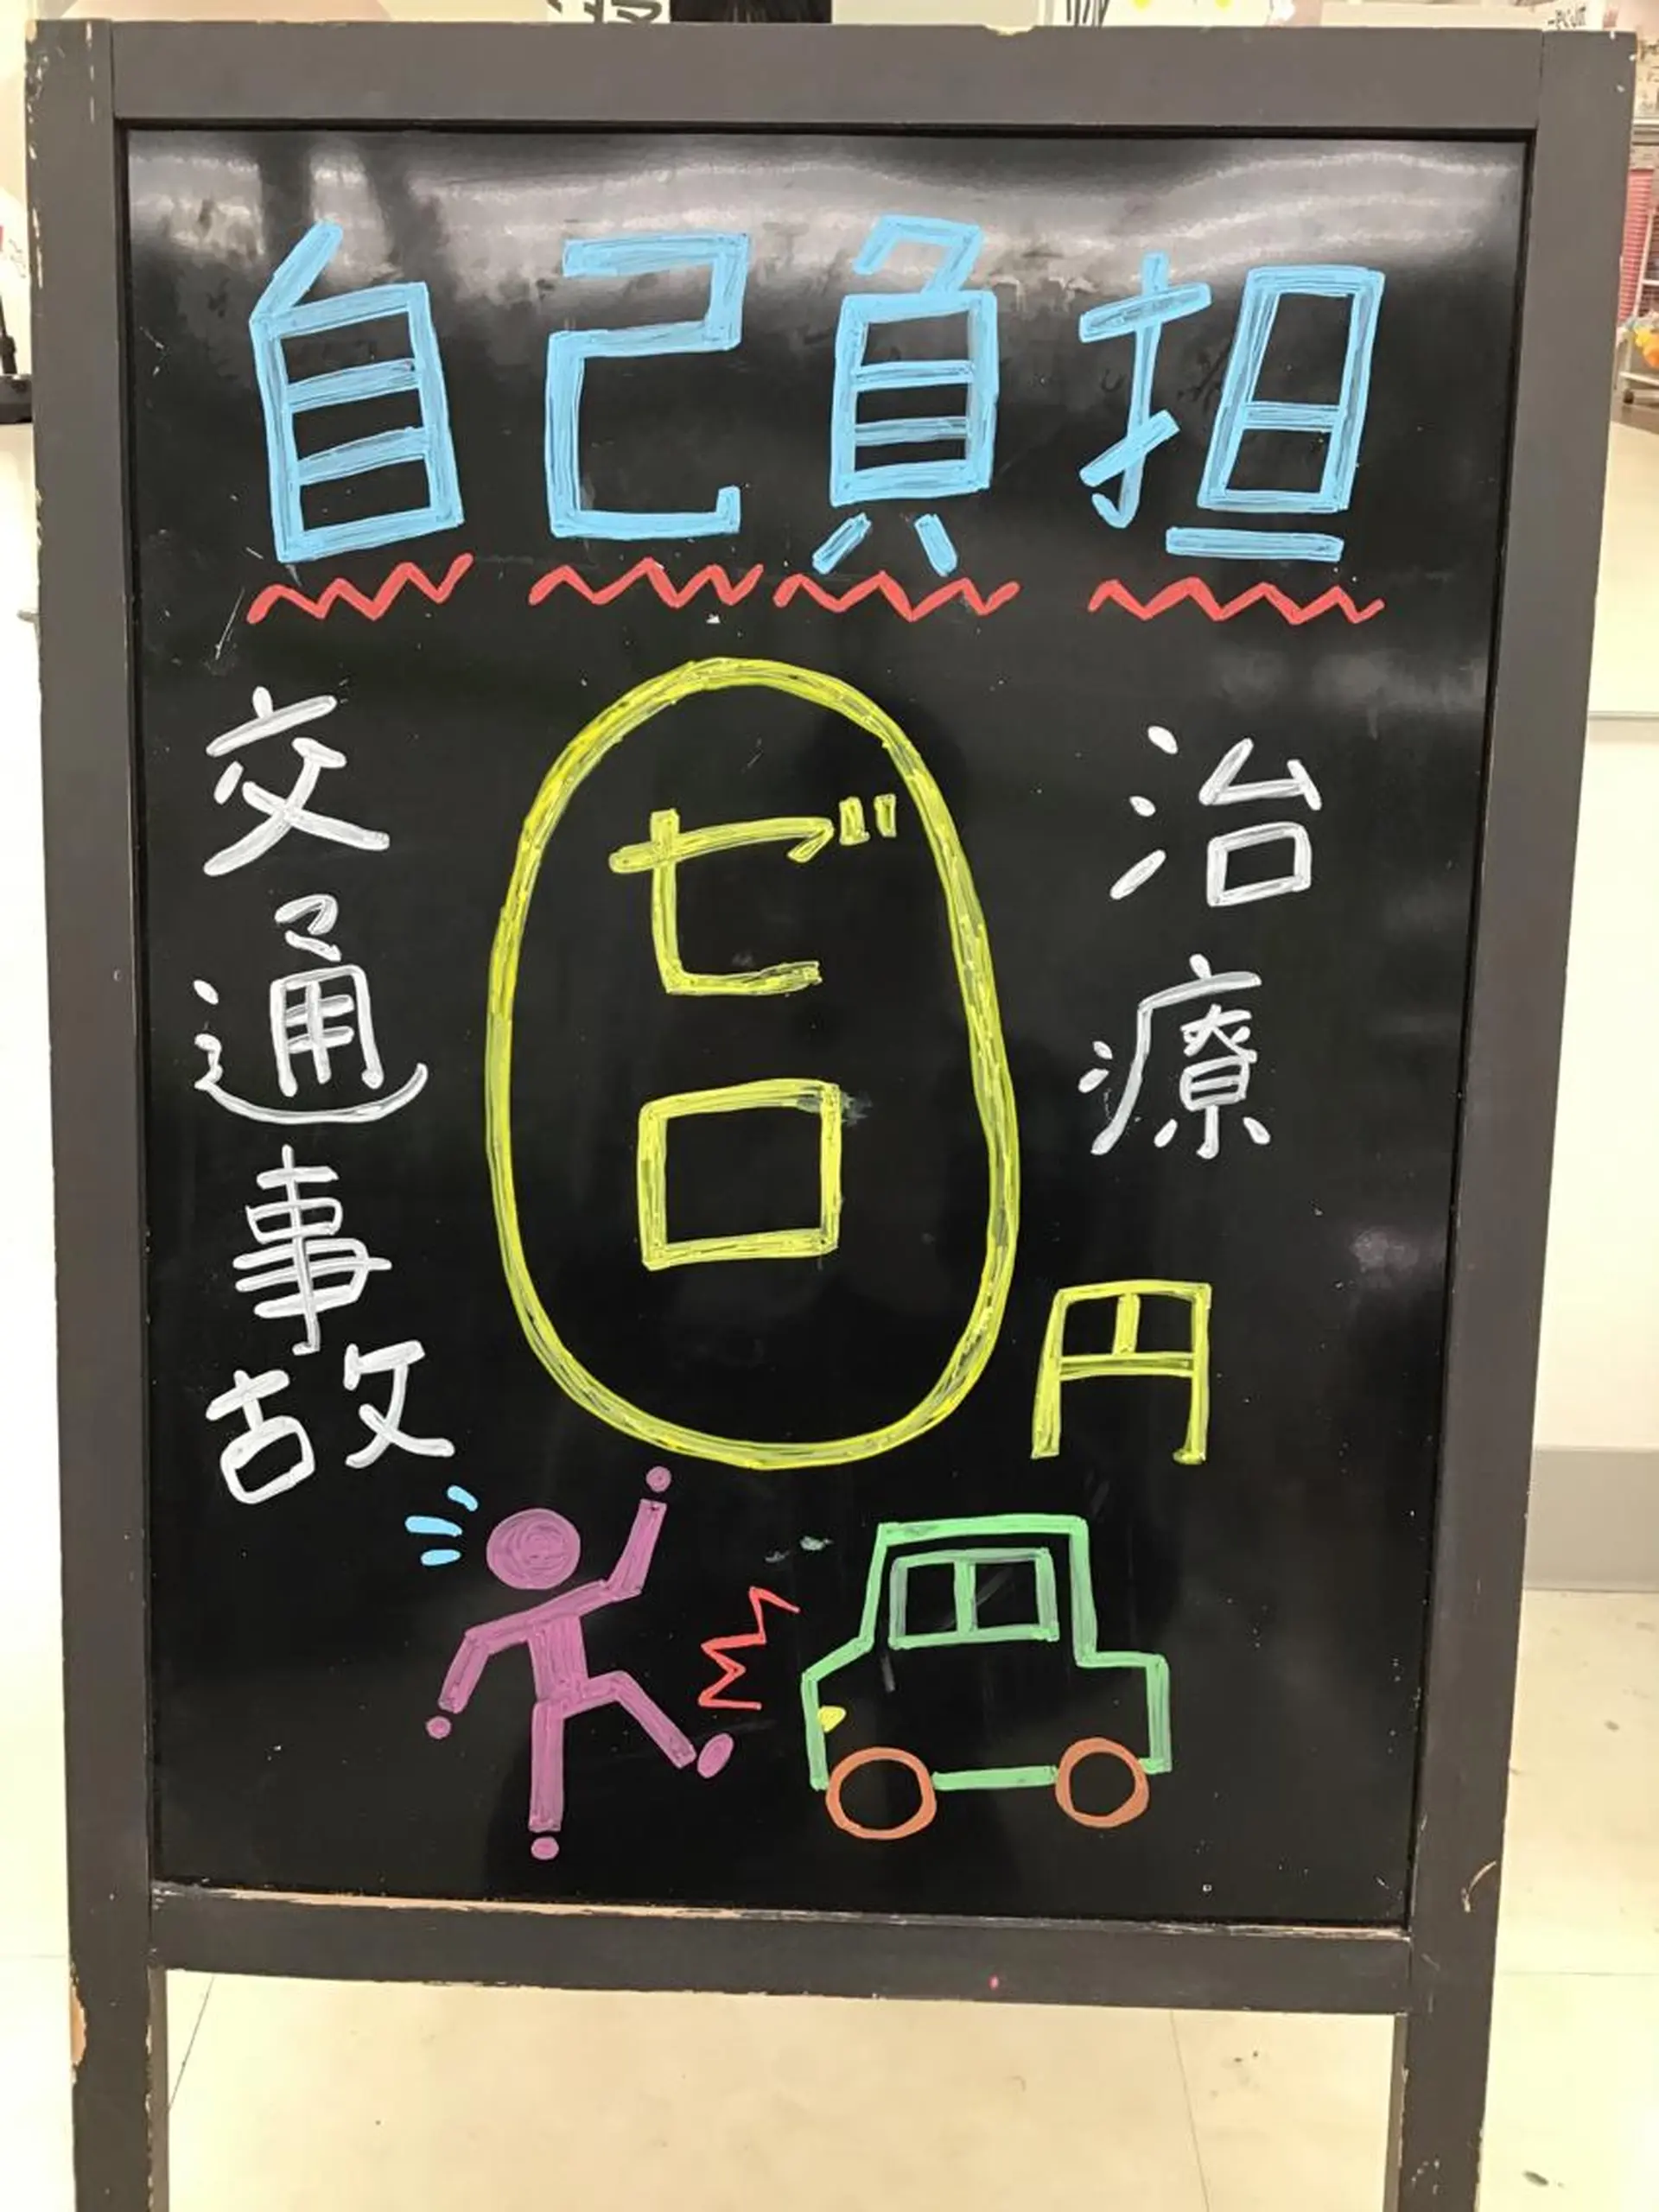 自己負担
交通事故
ゼロ
円
治療